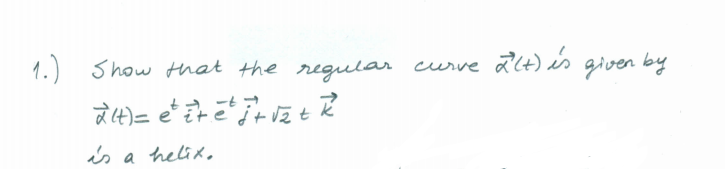 1.) Show that the regular curve α⃗(t) is given by
α⃗(t)= eᵗ i⃗ + e⁻ᵗ j⃗ + √2 t k⃗
is a helix.